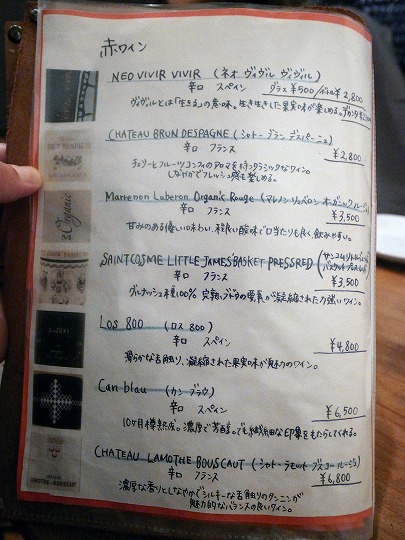 赤ワイン
NEO VIVIR VIVIR (ネオ ヴィヴィル ヴィヴィル)
辛口 スペイン グラス¥500/ボトル¥2,800
ヴィヴィルとは「生きる」の意味。生き生きした果実味が楽しめる。
CHATEAU BRUN DESPAGNE (シャトー ブラン デスパーニュ)
辛口 フランス ¥2,800
チェリーとフルーツコンフィのアロマを持つクラシックなワイン。
しなやかでフレッシュ感を楽しめる。
Marrenon Luberon Organic Rouge (マレノン リュベロン オーガニックルージュ)
辛口 フランス ¥3,500
甘みのある優しい味わい。程良い酸味で口当たりも良く飲みやすい。
SAINT COSME LITTLE JAMES BASKET PRESS RED
辛口 フランス ¥3,500
グルナッシュ種100% 完熟ブドウの果実が凝縮された力強いワイン。
Los 800 (ロス 800)
辛口 スペイン ¥4,800
滑らかな舌触り、凝縮された果実味が魅力のワイン。
Can blau (カン ブラウ)
辛口 スペイン ¥6,500
10ヶ月樽熟成。濃厚で芳醇。でも繊細な印象をもたらしてくれる。
CHATEAU LAMOTHE BOUSCAUT (シャトー ラモット ブスコー ルージュ)
辛口 フランス ¥6,800
濃厚な香りとしなやかでシルキーな舌触りのタンニンが
魅力的なバランスの良いワイン。